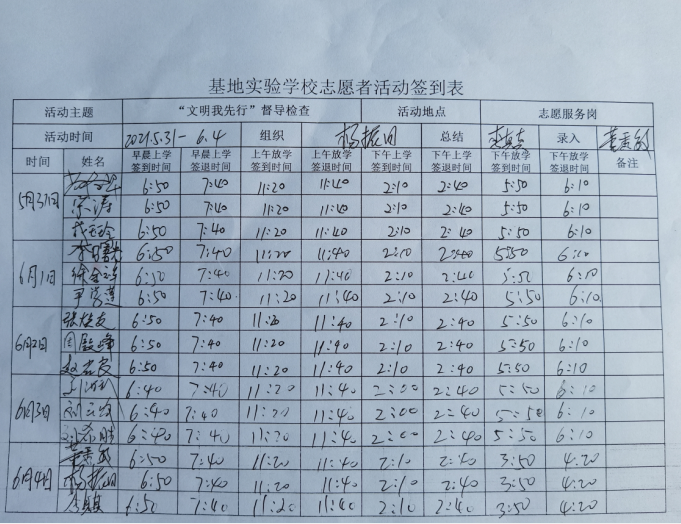 基地实验学校志愿者活动签到表
活动主题 “文明我先行”督导检查 活动地点 志愿服务岗
活动时间 2021.5.31-6.4 组织 杨振国 总结 录入
时间 姓名 早晨上学签到时间 早晨上学签退时间 上午放学签到时间 上午放学签退时间 下午上学签到时间 下午上学签退时间 下午放学签到时间 下午放学签退时间 备注
5月31日 6:50 7:40 11:20 11:40 2:10 2:40 5:50 6:10
宋涛 6:50 7:40 11:20 11:40 2:10 2:40 5:50 6:10
6:50 7:40 11:20 11:40 2:10 2:40 5:50 6:10
6月1日 6:50 7:40 11:20 11:40 2:10 2:40 5:50 6:10
6:50 7:40 11:20 11:40 2:10 2:40 5:50 6:10
6:50 7:40 11:20 11:40 2:10 2:40 5:50 6:10
6月2日 6:50 7:40 11:20 11:40 2:10 2:40 5:50 6:10
6:50 7:40 11:20 11:40 2:10 2:40 5:50 6:10
6:50 7:40 11:20 11:40 2:10 2:40 5:50 6:10
6月3日 6:40 7:40 11:20 11:40 2:00 2:40 5:50 6:10
6:40 7:40 11:20 11:40 2:00 2:40 5:50 6:10
6:40 7:40 11:20 11:40 2:00 2:40 5:50 6:10
6月4日 6:50 7:40 11:20 11:40 2:10 2:40 3:50 4:20
杨振国 6:50 7:40 11:20 11:40 2:10 2:40 3:50 4:20
6:50 7:40 11:20 11:40 2:10 2:40 3:50 4:20